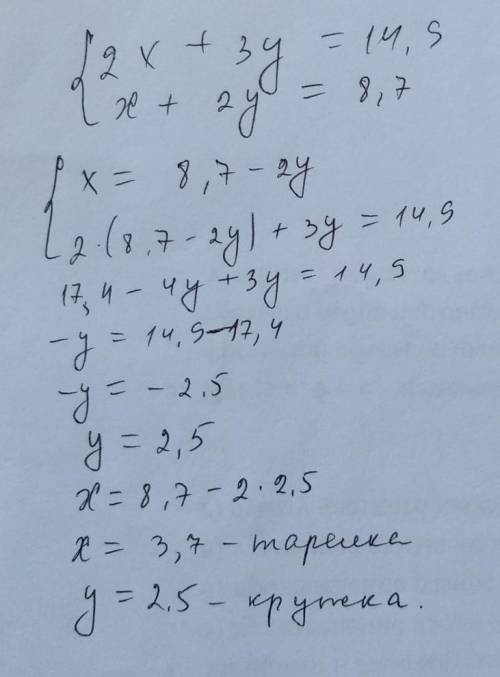 2x + 3y = 14,9
x + 2y = 8,7
x = 8,7 - 2y
2·(8,7 - 2y) + 3y = 14,9
17,4 - 4y + 3y = 14,9
-y = 14,9 - 17,4
-y = -2.5
y = 2,5
x = 8,7 - 2·2,5
x = 3,7 - тарелка
y = 2.5 - кружка.